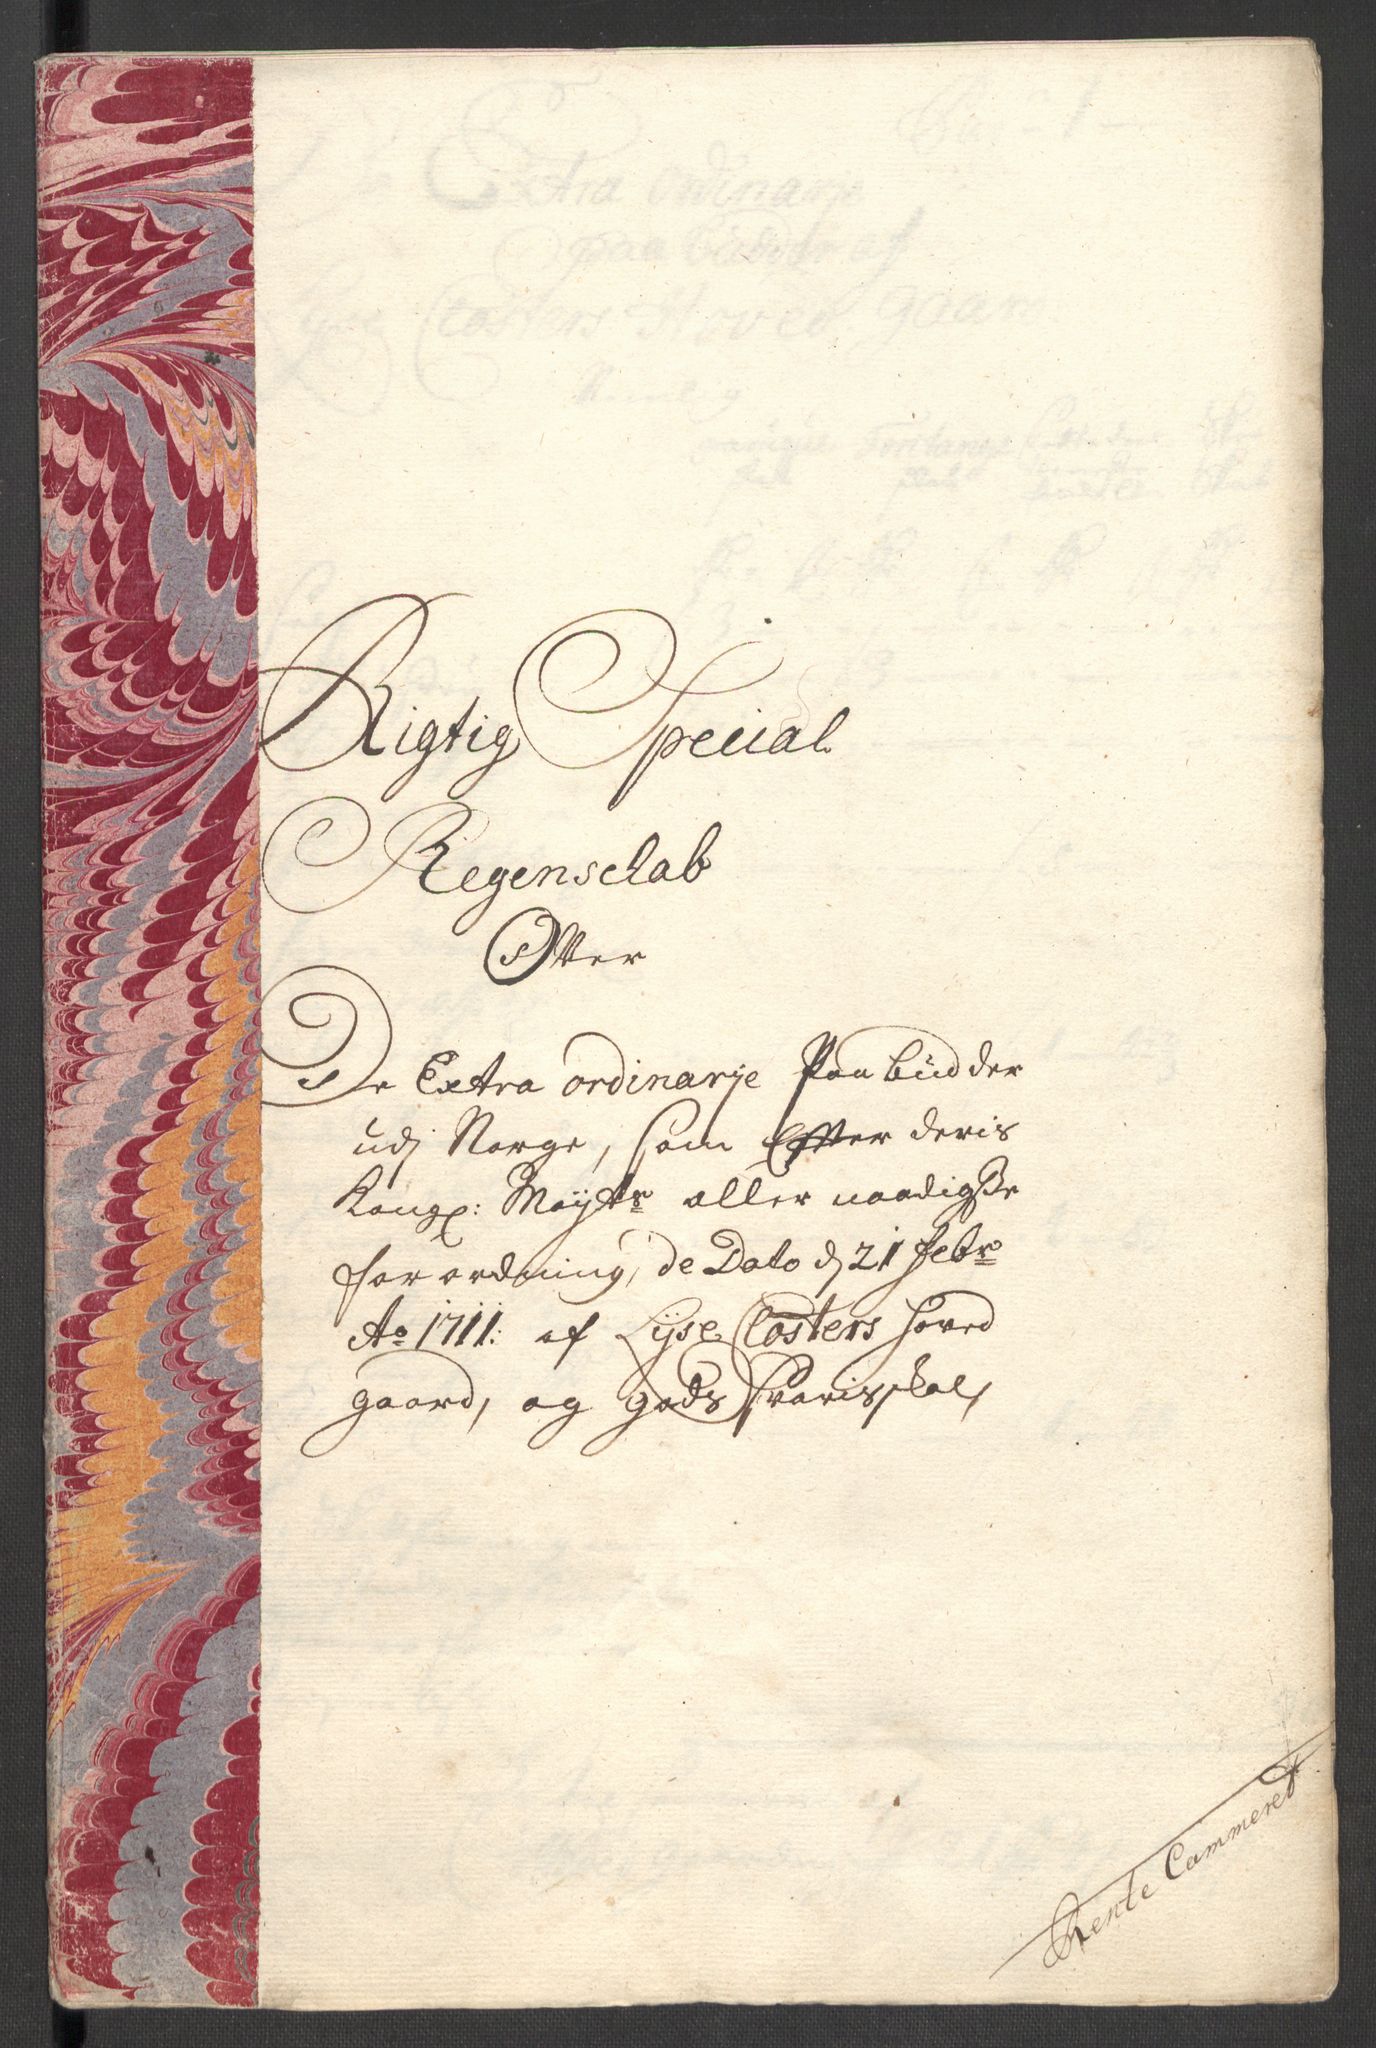 Rigtig Special
Regenschab
Ofver
De Extra ordinarje Paabüdder
udj Norge, som Efter deris
Kongl: Mayts aller naadigste
forordning, de Dato d 21 Febr
Ao 1711: af Lyse Closters hoved
gaard, og gods svaris skal,
Rente Cammeret